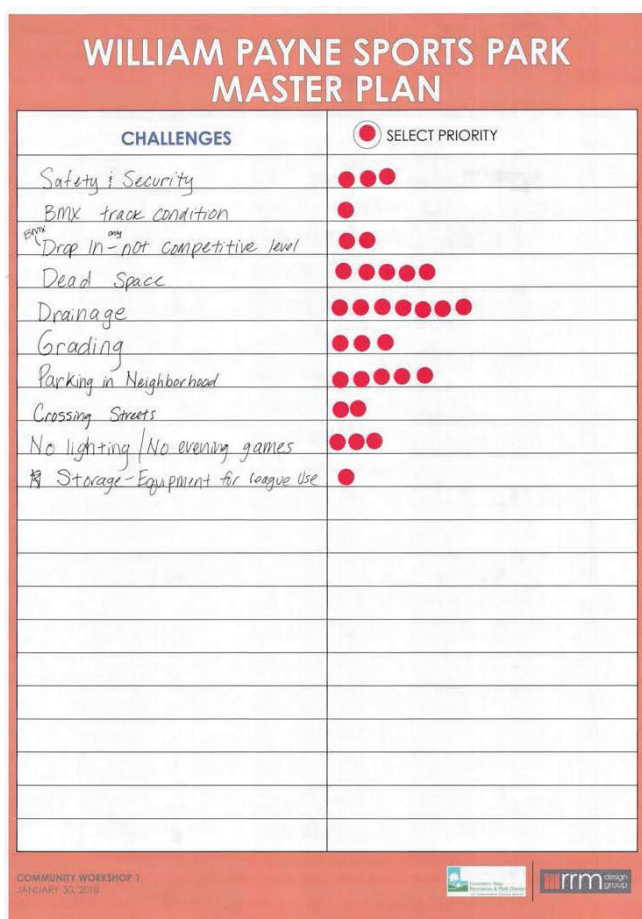 WILLIAM PAYNE SPORTS PARK
MASTER PLAN
CHALLENGES
SELECT PRIORITY
Safety & Security
BMX track condition
BMX Drop In - any not competitive level
Dead Space
Drainage
Grading
Parking in Neighborhood
Crossing Streets
No lighting / No evening games
Storage - Equipment for league Use
COMMUNITY WORKSHOP 1
JANUARY 30, 2018
Livermore Area
Recreation & Park District
rrm design
group